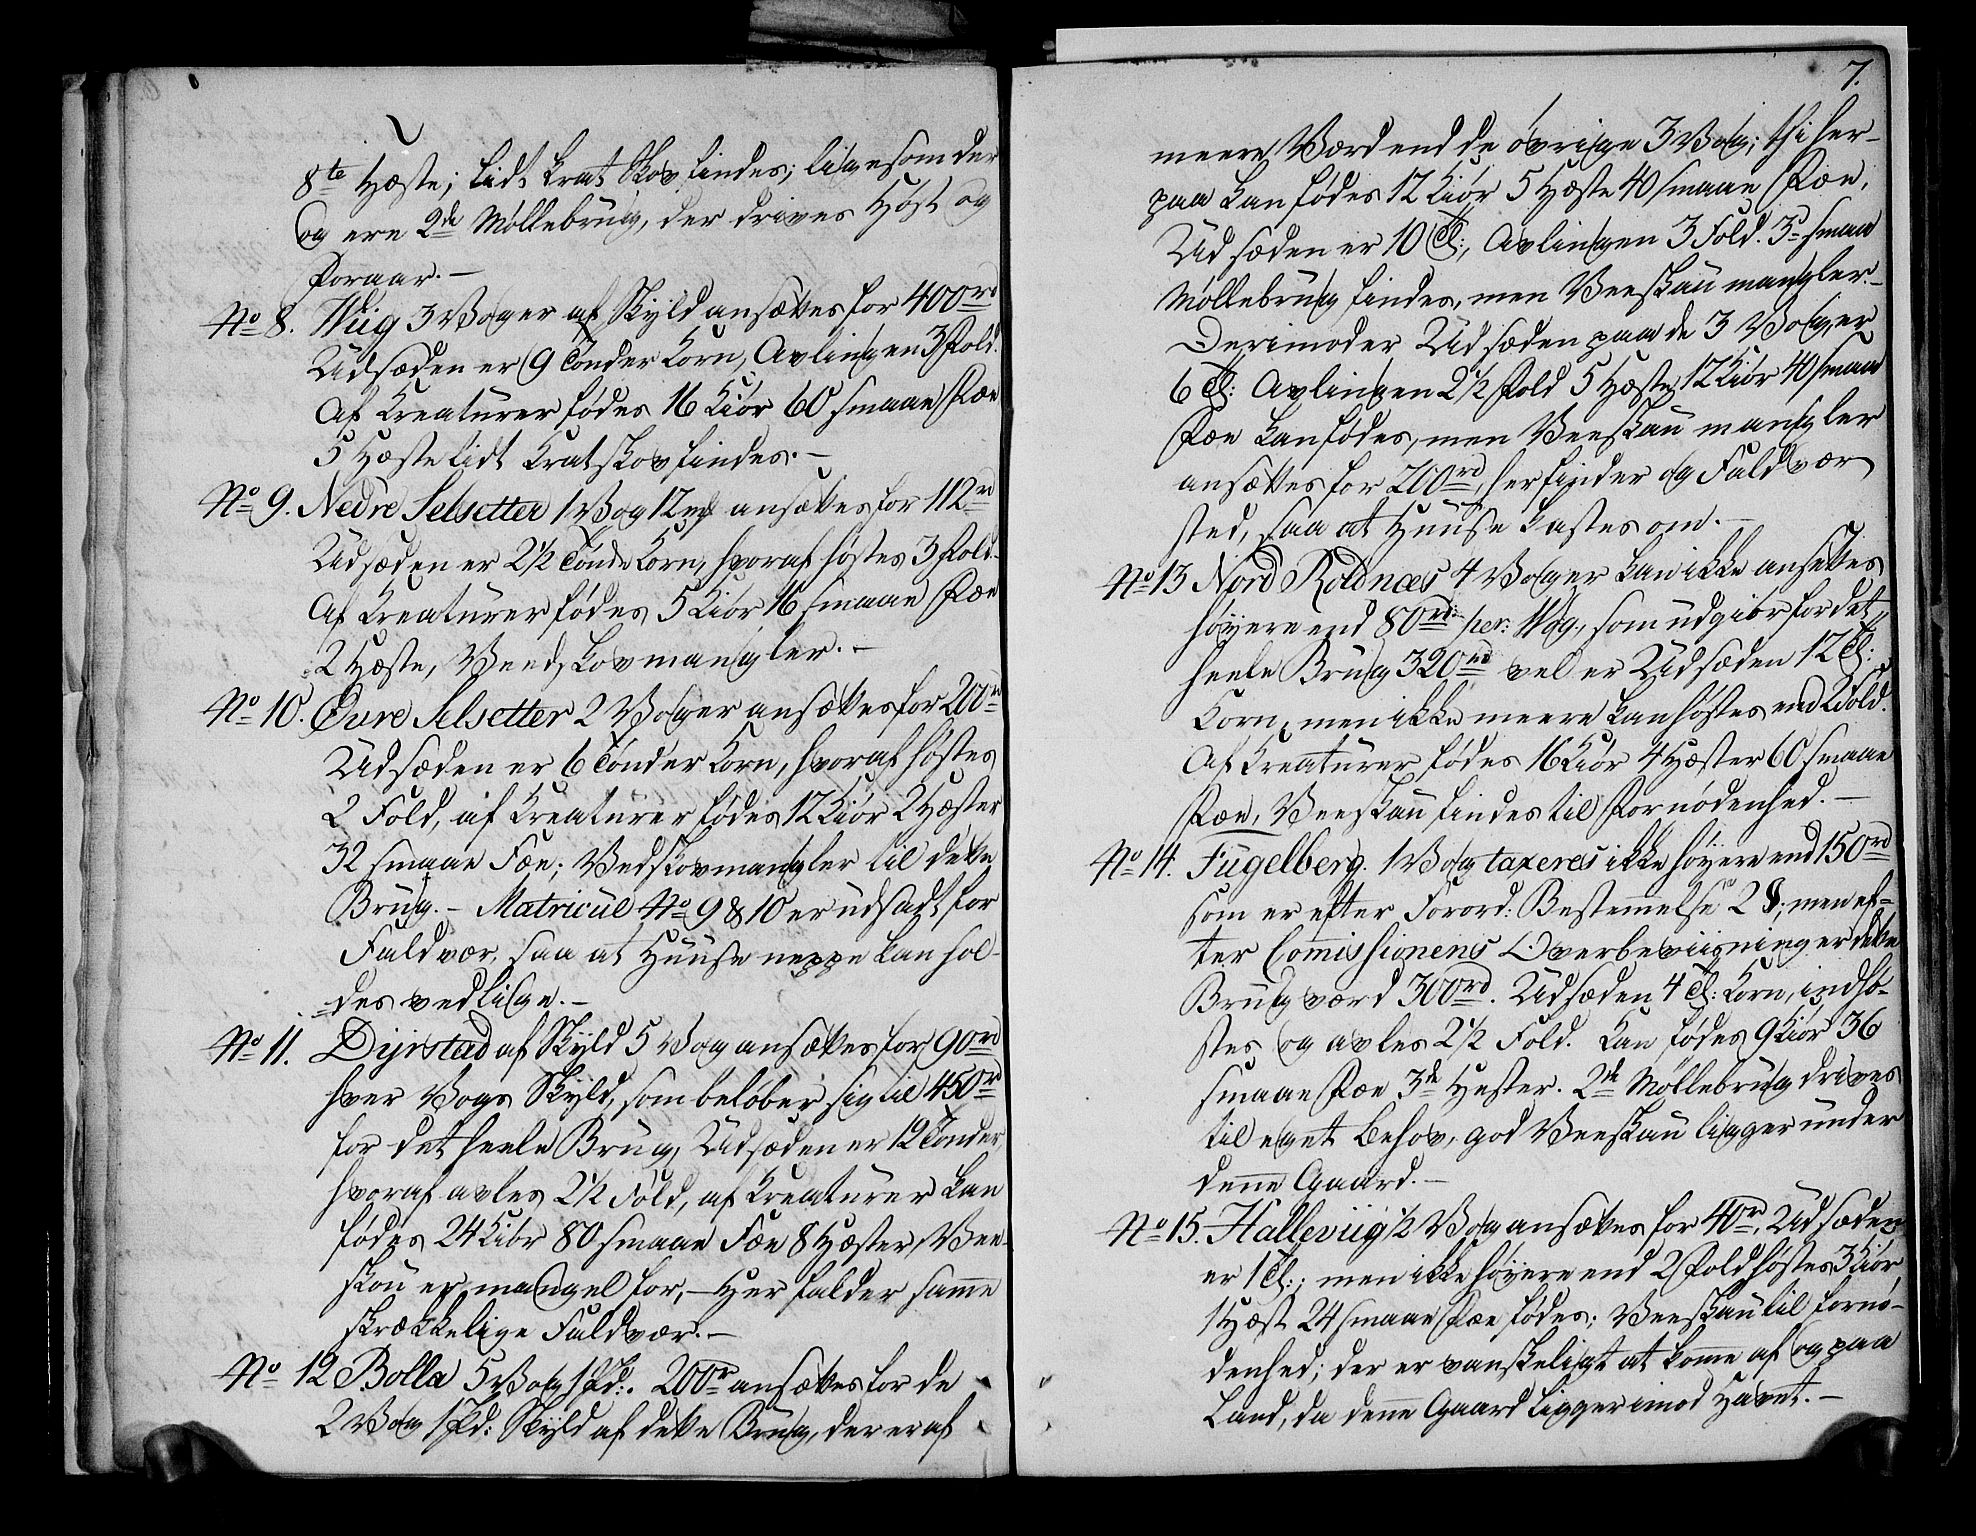 8te Hæste; lidt Krat Skov findes; ligesom der
og ere 2de Møllebrug, der drives Høst og
Foraar.—
No 8. Wiig 3 Voger af Skyld ansættes for 400rd
Udsæden er 9 Tønder Korn, Avlingen 3 Fold.
Af Kreaturer fødes 16 Kiör 60 smaae Fæe
5 Hæste lidt Kratskov findes.—
No 9. Nedre Selsetter 1 Vog 12 ansættes for 112rd
Udsæden er 2½ Tönde Korn, hvoraf höstes 3 Fold.
Af Kreaturer fødes 5 Kiör 16 smaae Fæe
2 Hæste, Veedskov mangler.—
No 10. Øvre Selsetter 2 Voger ansættes for 200rd
Udsæden er 6 Tønder Korn, hvoraf høstes
2 Fold, af Kreaturer fødes 12 Kiör 2 Hæster
32 smaae Fæe; Vedskov mangler til dette
Brug.— Matricul No 9 & 10 er udsadt for
Faldvær, saa at Huuse neppe kan hol-
des vedlige.—
No 11. Dyrstad af Skyld 5 Vog ansættes for 90rd
hver Vogs Skyld, som beløber sig til 450rd
for det heele Brug, Udsæden er 12 Tønder,
hvoraf avles 2½ Fold, af Kreaturer kan
fødes 24 Kiör 80 smaae Fæe 8 Hæster, Vee-
skou er mangel for,— Her falder samme
skrækkelige Faldvær.—
No 12 Bolla 5 Vog 1 Pd:. 200rd ansættes for de
2 Vog 1 Pd: Skyld af dette Brug, der er af
7.
meere Værd end de øvrige 3 Vog; thi her-
paa kan fødes 12 Kiör 5 Hæste 40 smaae Fæe,
Udsæden er 10 T:, Avlingen 3 Fold. 3 smaa
Møllebrug findes, men Veeskau mangler.—
Derimod er Udsæden paa de 3 Voger
6 T: Avlingen 2½ Fold 5 Hæste 12 Kiör 40 smaa
Fæe kan fødes, men Veeskau mangler
ansættes for 200rd, her finder og Faldvær
sted, saa at Huuse kastes om.—
No 13 Nord Roldnæs 4 Voger kan ikke ansettes
høyere end 80rd: per: Wog., som udgiör for det
heele Brug 320rd vel er Udsæden 12 T:
Korn, men ikke meere kan høstes end 2 Fold.
Af Kreaturer fødes 16 Kiör 4 Hæster 60 smaae
Fæe, Veeskau findes til Fornödenhed.—
No 14. Fugelberg. 1 Vog taxeres ikke høyere end 150rd
som er efter Forord: Bestemmelse 2 ; men ef-
ter Comissionens Overbeviisning er dette
Brug værd 300rd. Udsæden 4 T: Korn, indhø-
stes og avles 2½ Fold. Kan fødes 9 Kiör 36
smaae Fæe 3de Hester. 2de Møllebrug drives
til eget Behov, god Veeskau ligger under
denne Gaard.—
No 15. Halleviig ½ Vog ansættes for 40rd. Udsæden
er 1 T:; men ikke høyere end 2 Fold høstes 3 Kiör
1 Hæst 24 smaae Fæe fødes; Veeskau til fornø-
denhed; der er vanskeligt at komme af og paa
Land, da denne Gaard ligger imod Havet.—